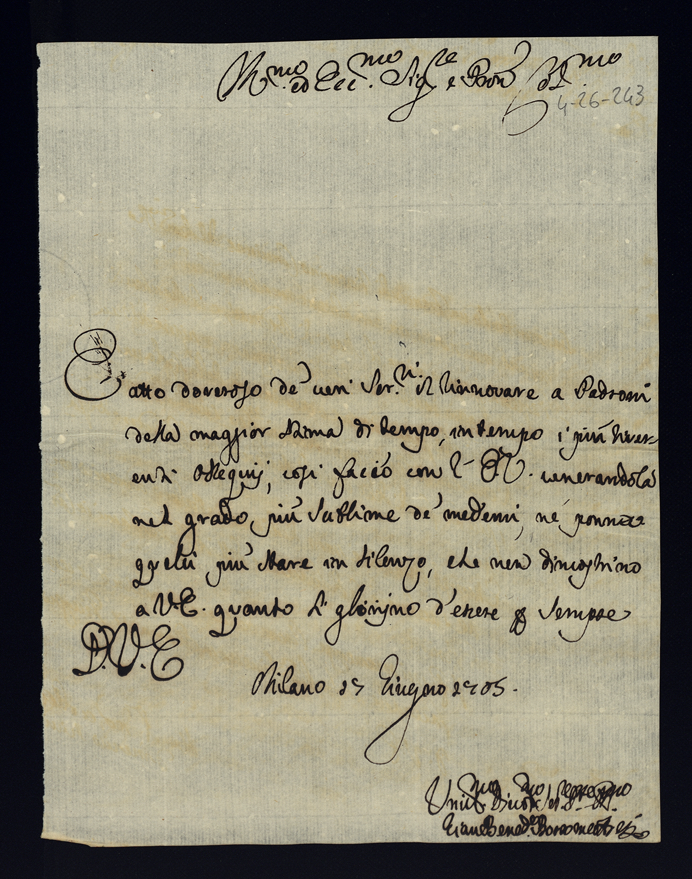 Ill.mo ed Ecc.mo Sig.re e Pron
4-26-243
È atto doveroso de' veri Ser.ri il rinnovare a Padroni
della maggior stima di tempo, in tempo i più river-
enti ossequij, così faccio con l'E.V. venerandola
nel grado, più sublime de' medemi, né ponno
quelli più stare in silenzo, che non dimostrino
a V.E. quanto si gloriino d'essere p sempre
D.V.E
Milano 27 Giugno 1705.
Um.mo